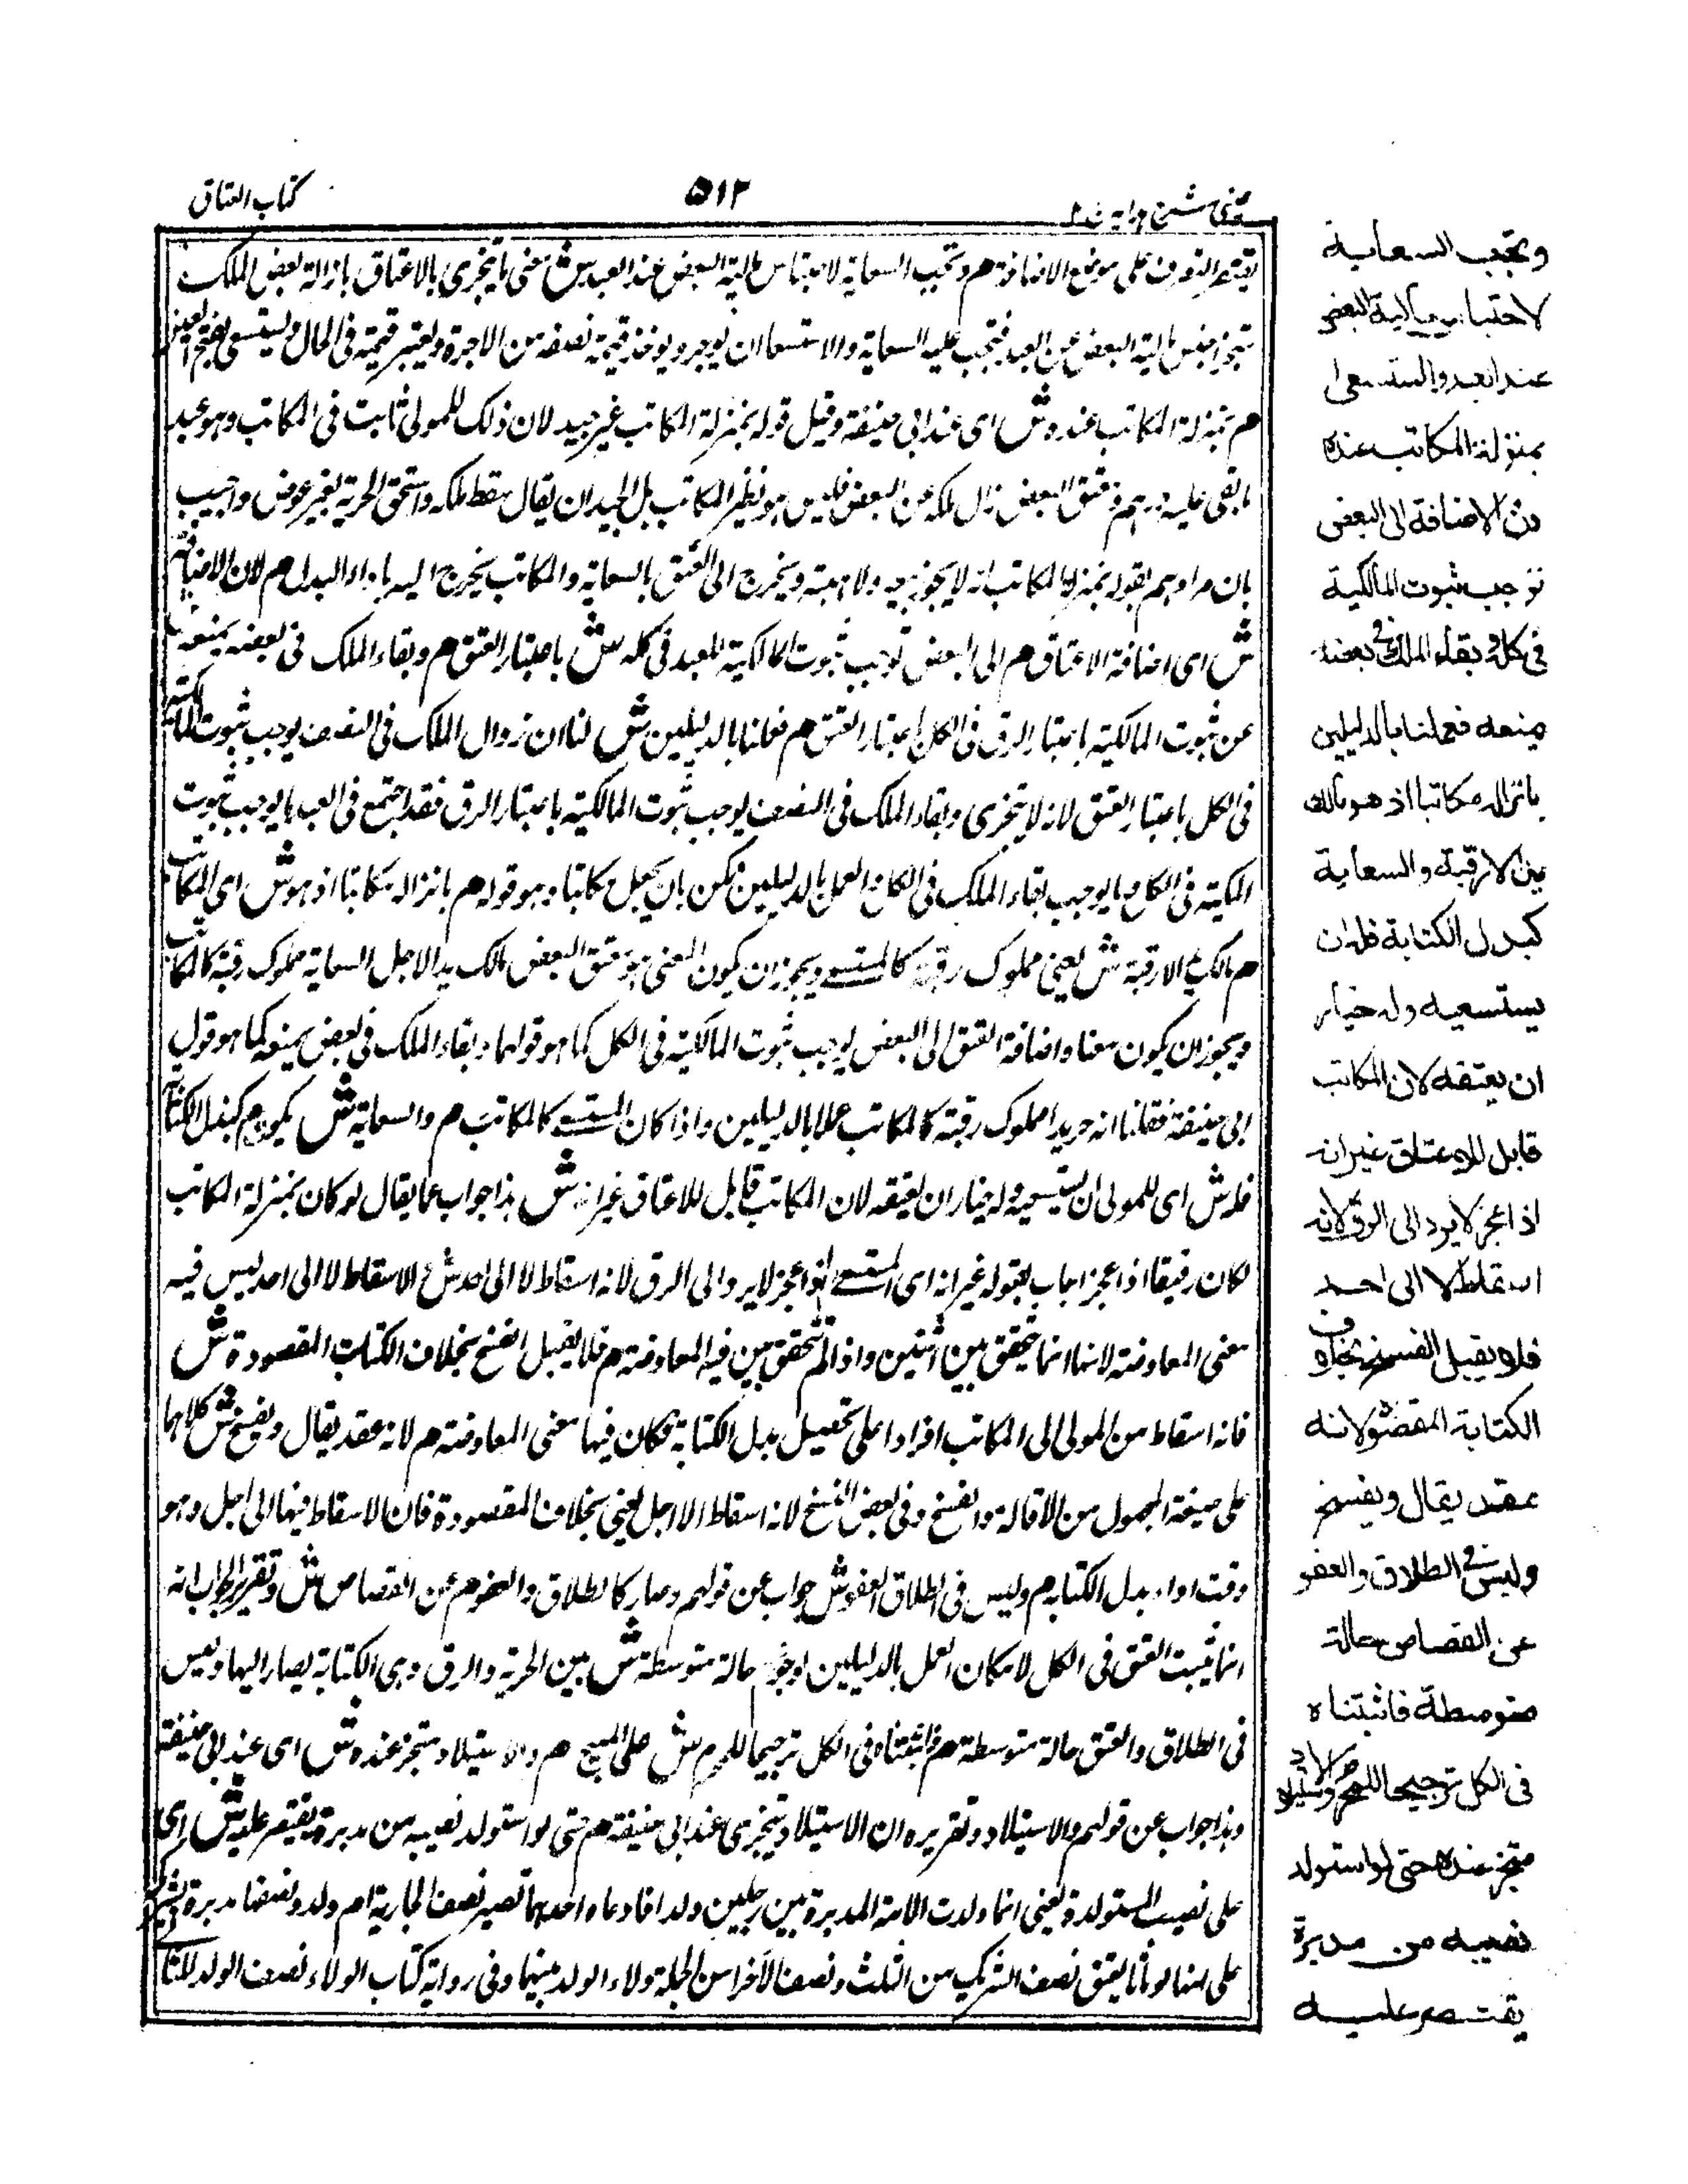 كتاب العتاق
٥١٢
عينى شرح هداية
يقتصر التصرف على موضع الاضافة هم وتجب السعاية لاحتباس مالية البعض عند العبد ش معنى ما يتجزى بالاعتاق بازالة بعض الملك
مالية البعض عن العبد فتجب عليه السعاية والاستسعا ان يوجر ويوخذ قيمة نصفه من الاجرة ويعتبر قيمته فى الحال ويستسعى بفتح العين
هم بمنزلة المكاتب عنده ش اى عند ابى حنيفة وقيل قوله بمنزلة المكاتب غير جيد لان ذلك للمولى ثابت فى المكاتب وهو عبد
ما بقى عليه درهم ومعتق البعض زال ملكه عن البعض فليس هو نظير المكاتب بل الجيد ان يقال سقط ملكه واستحق الحرية بغير عوض واجيب
بان مرادهم بقوله بمنزلة المكاتب انه لا يجوز بيعه ولا هبته ويخرج الى العتق بالسعاية والمكاتب يخرج اليه باداء البدل هم لان الاضافة
ش اى اضافة الاعتاق هم الى البعض توجب ثبوت المالكية للعبد فى كله ش باعتبار العتق هم وبقاء الملك فى بعضه يمنعه
عن ثبوت المالكية باعتبار الرق فى الكل باعتبار العتق هم فعلنا بالدليلين ش لنا ان زوال الملك فى النصف يوجب ثبوت المالكية
فى الكل باعتبار العتق لانه لا يتجزى وبقاء الملك فى النصف يوجب ثبوت المالكية باعتبار الرق فقد اجتمع فى العبد ما يوجب ثبوت
المالكية فى الكل وما يوجب بقاء الملك فى الكل والعمل بالدليلين ممكن بان يجعل مكاتبا وهو قوله هم بانزاله مكاتبا اذ هو ش اى المكاتب
هم مالك يد الا رقبة ش يعنى مملوك رقبة كالمستسعى ويجوز ان يكون المعنى هو معتق البعض مالك يدا لاجل السعاية مملوك رقبة كالمكاتب
ويجوز ان يكون معناه اضافة العتق الى البعض يوجب ثبوت المالكية فى الكل كما هو قولهما وبقاء الملك فى بعض يمنعه كما هو قول
ابى حنيفة فقلنا انه حر يدا مملوك رقبة كالمكاتب عملا بالدليلين واذا كان المستسعى كالمكاتب هم والسعاية ش يكون هم كبدل الكتابة
فله ش اى للمولى ان يستسعيه وله خيار ان يعتقه لان المكاتب قابل للاعتاق غير انه ش هذا جواب عما يقال لو كان بمنزلة المكاتب
لكان رقيقا اذا عجز اجاب بقوله غير انه اى المستسعى اذا عجز لا يرد الى الرق لانه اسقاط لا الى احد ش الاسقاط لا الى احد ليس فيه
معنى المعاوضة لانها انما يتحقق بين اثنين واذا لم تتحقق بين فيه المعاوضة هم فلا يقبل الفسخ بخلاف الكتابة المقصودة ش
فانه اسقاط من المولى الى المكاتب اقرارا على تحصيل بدل الكتابة فكان فيها معنى المعاوضة هم لانه عقد يقال ويفسخ ش كلاهما
على صيغة المجهول من الاقالة والفسخ وفى بعض النسخ لانه اسقاط لا اجل يعنى بخلاف المقصودة فان الاسقاط فيها الى اجل وهو
وقت اداء بدل الكتابة هم وليس فى الطلاق والعفو ش جواب عن قولهم وصار كالطلاق والعفو هم عن القصاص ش وتقرير الجواب انه
انما يثبت العتق فى الكل لامكان العمل بالدليلين لوجود حالة متوسطة ش بين الحرية والرق وهى الكتابة يصار اليها وليس
فى الطلاق والعتق حالة متوسطة هم فاثبتناه فى الكل ترجيحا للمحرم ش على المبيح هم والاستيلاد متجز عنده ش اى عند ابى حنيفة
وهذا جواب عن قولهم والاستيلاد وتقريره ان الاستيلاد يتجزى عند ابى حنيفة هم حتى لو استولد نصيبه من مدبرة يقتصر عليه ش اى
على نصيب المستولد يعنى انما ولدت الامة المدبرة بين رجلين ولدا فادعاه احدهما تصير نصف الجارية ام ولد ونصفها مدبرة
على انها لو ماتا يعتق نصف الشريك من الثلث ونصف الآخر من الجملة وولاء الولد بينهما وفى رواية كتاب الولاء نصف الولد
وتجب السعاية
لاحتباس مالية البعض
عند العبد والمستسعى
بمنزلة المكاتب عنده
لان الاضافة الى البعض
توجب ثبوت المالكية
فى كله وبقاء الملك فى بعضه
يمنعه فعملنا بالدليلين
بانزاله مكاتبا اذ هو مالك
يدا لا رقبة والسعاية
كبدل الكتابة فله ان
يستسعيه وله خيار
ان يعتقه لان المكاتب
قابل للاعتاق غير انه
اذا عجز لا يرد الى الرق لانه
اسقاط لا الى احد
فلا يقبل الفسخ بخلاف
الكتابة المقصودة لانه
عقد يقال ويفسخ
وليس فى الطلاق والعفو
عن القصاص حالة
متوسطة فاثبتناه
فى الكل ترجيحا للمحرم والاستيلاد
متجز عنده حتى لو استولد
نصيبه من مدبرة
يقتصر عليه